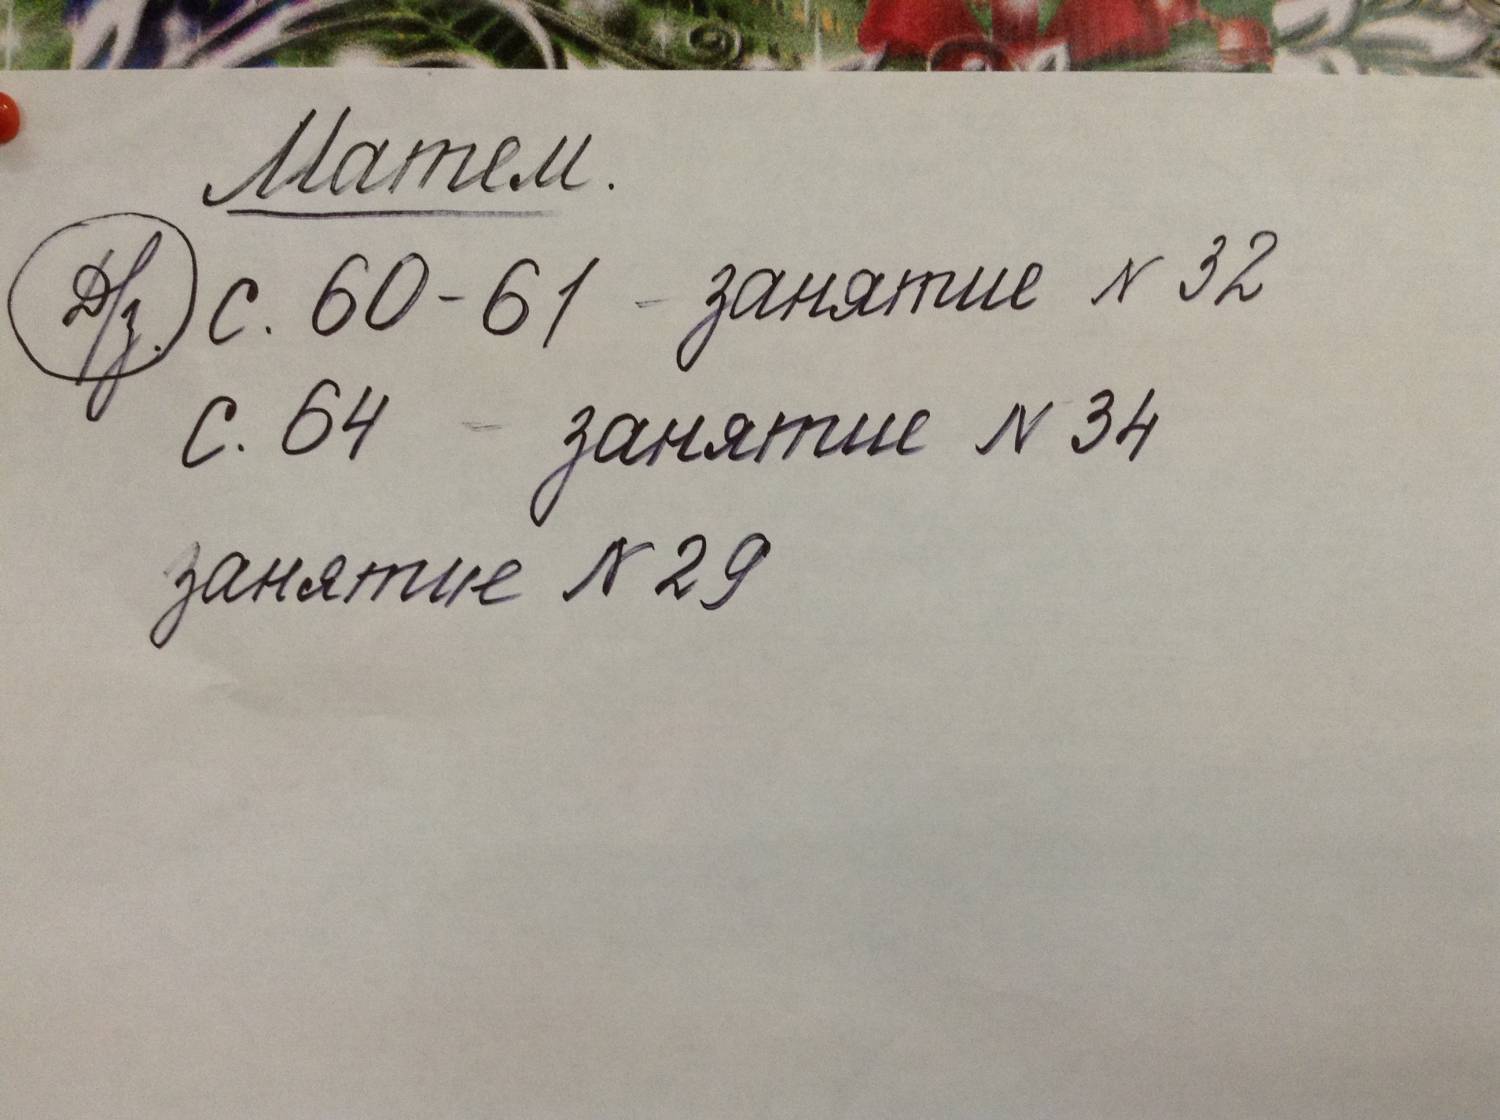 Матем.
Д/з. с. 60-61 - занятие N 32
с. 64 - занятие N 34
занятие N 29